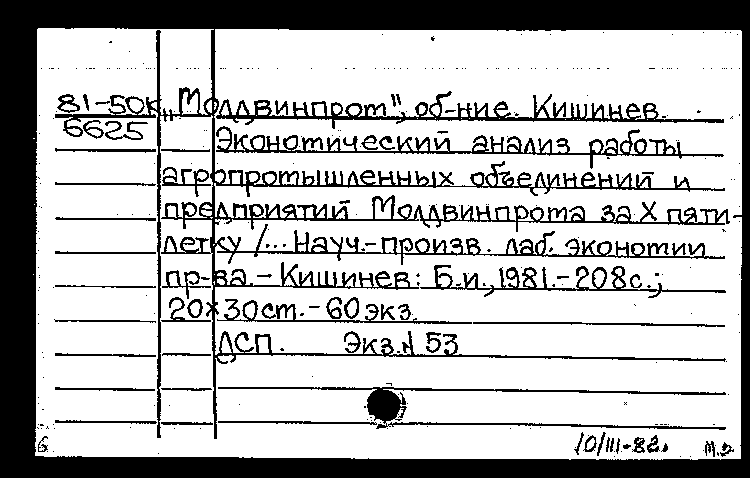 81-50к „Молдвинпром", об-ние. Кишинев.
6625
Экономический анализ работы
агропромышленных объединений и
предприятий Молдвинпрома за X пяти-
летку /... Науч.-произв. лаб. экономии
пр-ва. - Кишинев: Б.и., 1981. - 208с.;
20x30см. - 60 экз.
ДСП. Экз.№ 53
10/III-82.